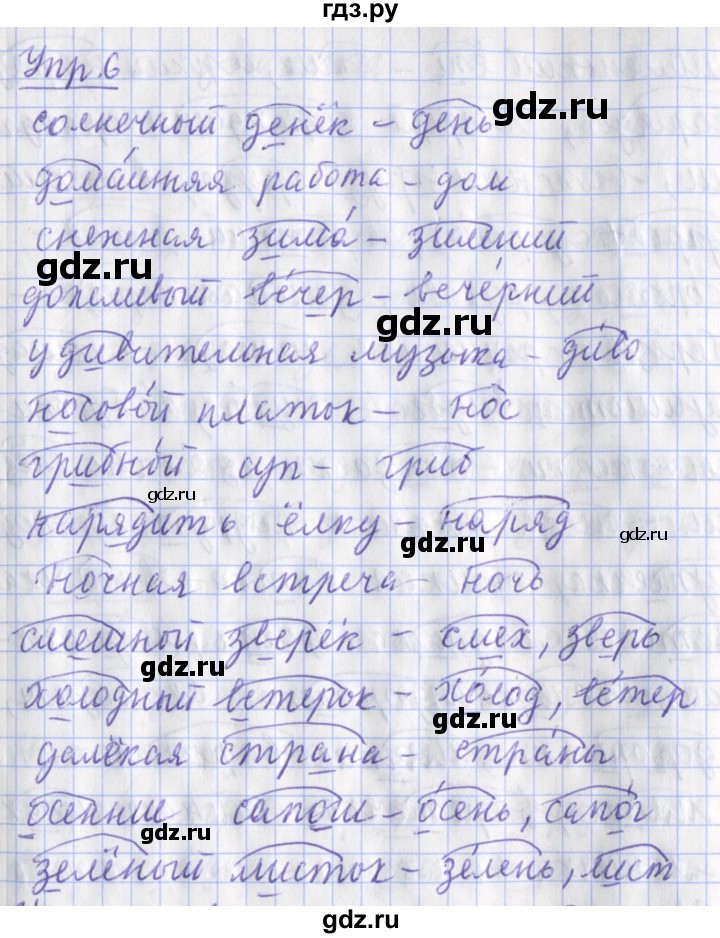 гдз.ру
Упр.6
солнечный денёк – день
gdz.ru
домашняя работа – дом
снежная зима – зимний
gdz.ru
дождливый вечер – вечерний
gdz.ru
удивительная музыка – диво
носовой платок – нос
грибной суп – гриб
gdz.ru
нарядить ёлку – наряд
gdz.ru
gdz.ru
Ночная встреча – ночь
смешной зверёк – смех, зверь
gdz.ru
холодный ветерок – холод, ветер
gdz.ru
далёкая страна – страны
осенние сапоги – осень, сапог
gdz.ru
зелёный листок – зелень, лист
gdz.ru